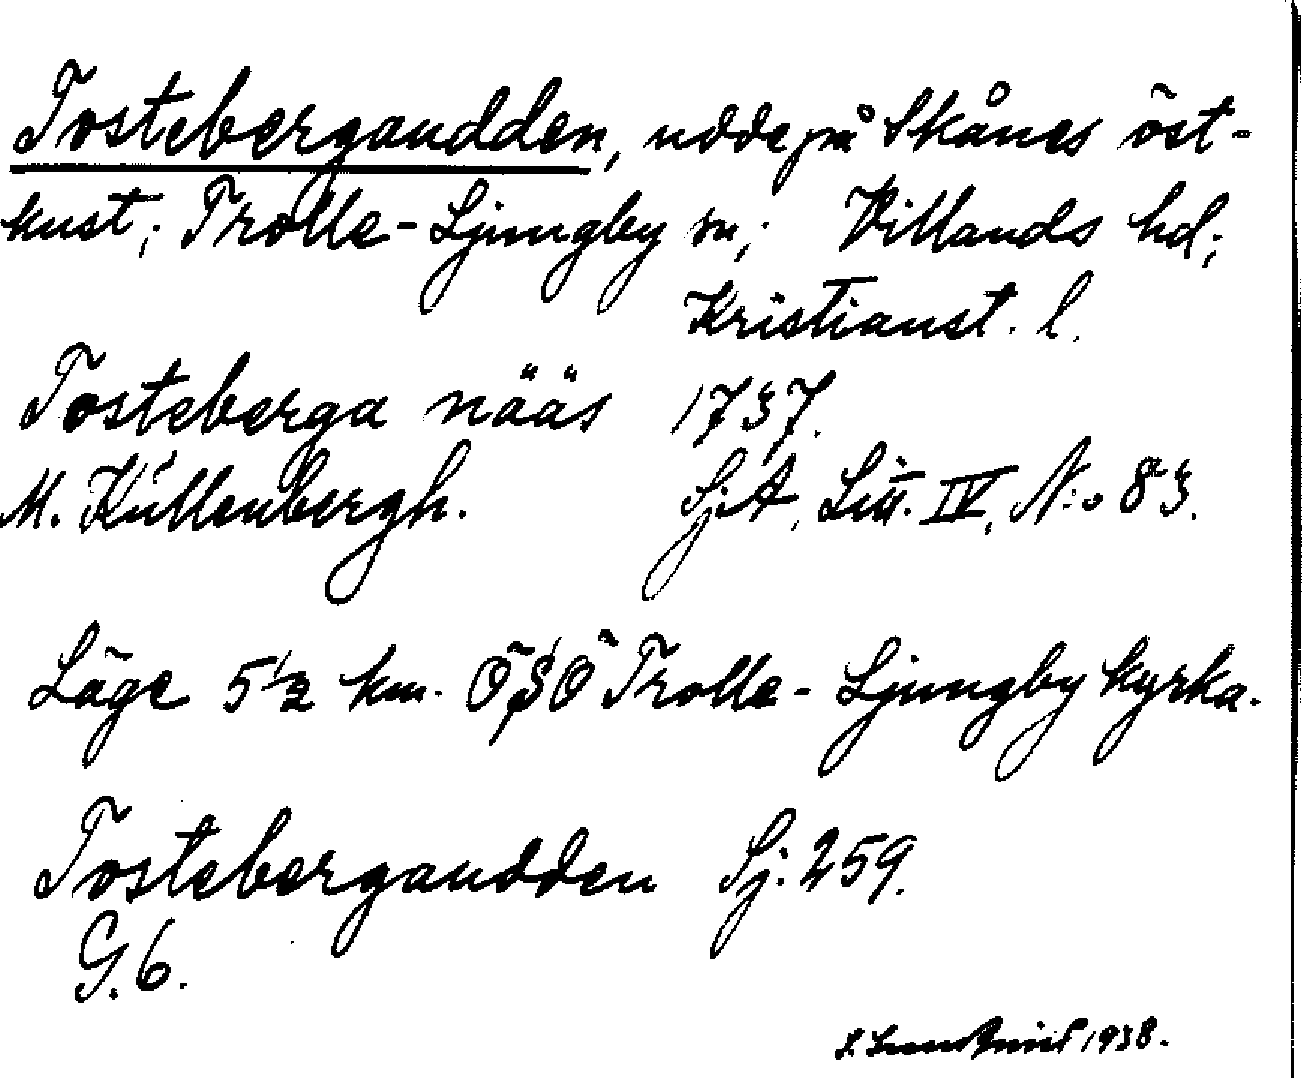 Tostebergaudden, udde på Skånes öst-
kust; Trolle-Ljungby sn; Villands hd;
Kristianst. l.
Tosteberga nääs 1737.
M. Kullenbergh. Sj.A, Litt. IV, N:o 83.
Läge 5 1/2 km. ÖSÖ Trolle-Ljungby kyrka.
Tostebergaudden Sj. 259.
G. 6.
1938.